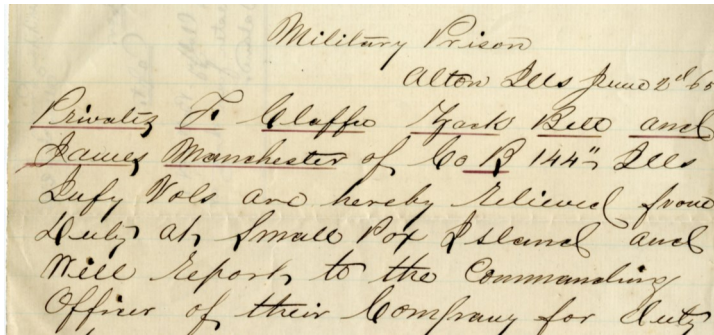 Military Prison
Alton Ills June 2d 65
Privates F. Claffe Zack Bell and
James Manchester of Co B 144" Ills
Infy Vols are hereby Relieved from
Duty at Small Pox Island and
Will Report to the Commanding
Officer of their Company for duty